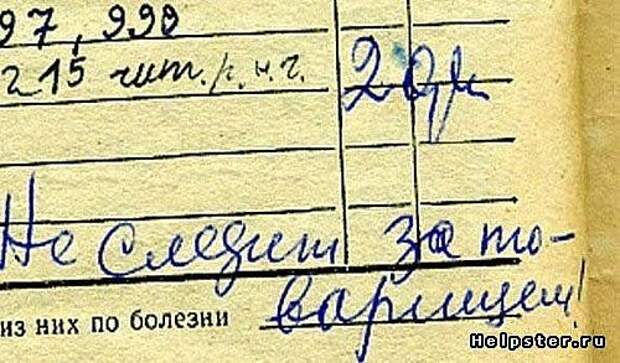 97, 990
215 чит.
2
Не следит за то-
варищем!
из них по болезни
Helpster.ru